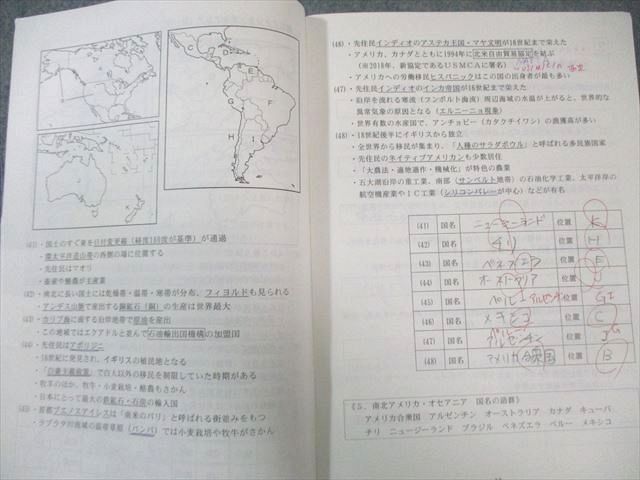 A
B
C
D
E
F
G
H
(41)・国土のすぐ東を日付変更線(経度180度が基準)が通過
・環太平洋造山帯の西側の端に位置する
・先住民はマオリ
・畜産や酪農が主産業
(42)・南北に長い国土には乾燥帯・温帯・寒帯が分布、フィヨルドも見られる
・アンデス山脈で産出する銅鉱石(銅)の生産は世界最大
(43)・カリブ海に面する沿岸地帯で原油を産出
・この地域ではエクアドルと並んで石油輸出国機構の加盟国
(44)・先住民はアボリジニ
・18世紀に発見され、イギリスの植民地となる
・「白豪主義政策」で白人以外の移民を制限していた時期がある
・牧羊のほか、牧牛・小麦栽培・酪農もさかん
・日本にとって最大の鉄鉱石・石炭の輸入国
(45)・首都ブエノスアイレスは「南米のパリ」と呼ばれる街並みをもつ
・ラプラタ川流域の温帯草原(パンパ)では小麦栽培や牧牛がさかん
(46)・先住民インディオのアステカ王国・マヤ文明が16世紀まで栄えた
・アメリカ、カナダとともに1994年に北米自由貿易協定を結ぶ
(※2018年、新協定であるUSMCAに署名)
・アメリカへの労働移民ヒスパニックはこの国の出身者が最も多い
(47)・先住民インディオのインカ帝国が16世紀まで栄えた
・沿岸を流れる寒流(フンボルト海流)周辺海域の水温が上がると、世界的な
異常気象の原因となる(エルニーニョ現象)
・世界有数の水産国で、アンチョビー(カタクチイワシ)の漁獲高が多い
(48)・18世紀後半にイギリスから独立
・全世界から移民が集まり、「人種のサラダボウル」と呼ばれる多民族国家
・先住民のネイティブアメリカンも少数居住
・「大農法・適地適作・機械化」が特色の農業
・五大湖沿岸の重工業、南部(サンベルト地帯)の石油化学工業、太平洋岸の
航空機産業やIC工業(シリコンバレーが中心)などが有名
(41) 国名 ニュージーランド 位置 K
(42) 国名 チリ 位置 H
(43) 国名 ベネズエラ 位置 E
(44) 国名 オーストラリア 位置
(45) 国名 ペルー アルゼンチン 位置 GI
(46) 国名 メキシコ 位置 C
(47) 国名 ペルー アルゼンチン 位置 G
(48) 国名 アメリカ合衆国 位置 B
《5. 南北アメリカ・オセアニア 国名の語群》
アメリカ合衆国 アルゼンチン オーストラリア カナダ キューバ
チリ ニュージーランド ブラジル ベネズエラ ペルー メキシコ